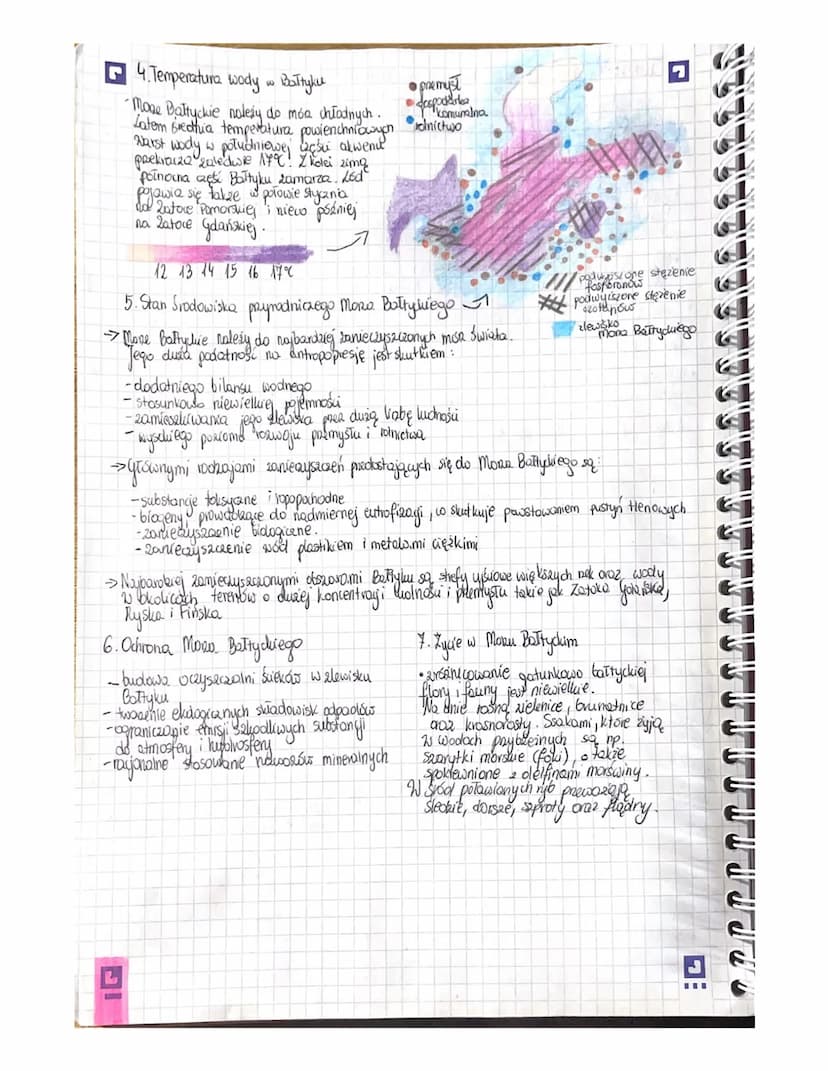 4. Temperatura wody w Bałtyku
- Morze Bałtyckie należy do mórz chłodnych.
Latem średnia temperatura powierzchniowych
warst wody w południowej części akwenu
przekracza zaledwie 17°C! Z kolei zimą
północna część Bałtyku zamarza. Lód
pojawia się także w połowie stycznia
na Zatoce Pomorskiej i nieco później
na Zatoce Gdańskiej.
12 13 14 15 16 17°C
przemysł
gospodarka
komunalna
rolnictwo
podwyższone stężenie
fosforanów
podwyższone stężenie
azotanów
zlewisko
Morza Bałtyckiego
5. Stan środowiska przyrodniczego Morza Bałtyckiego
→ Morze Bałtyckie należy do najbardziej zanieczyszczonych mórz świata.
Jego duża podatność na antropopresję jest skutkiem:
- dodatniego bilansu wodnego
- stosunkowo niewielkiej pojemności
- zamieszkiwania jego zlewiska przez dużą liczbę ludności
- wysokiego poziomu rozwoju przemysłu i rolnictwa
→ Głównymi rodzajami zanieczyszczeń przedostających się do Morza Bałtyckiego są:
- substancje toksyczne i ropopochodne
- biogeny, prowadzące do nadmiernej eutrofizacji, co skutkuje powstawaniem pustyń tlenowych
- zanieczyszczenie biologiczne.
- zanieczyszczenie wód plastikiem i metalami ciężkimi
→ Najbardziej zanieczyszczonymi obszarami Bałtyku są strefy ujściowe większych rzek oraz wody
w okolicach terenów o dużej koncentracji ludności i przemysłu takie jak Zatoka Gdańska,
Ryska i Fińska
6. Ochrona Morza Bałtyckiego
- budowa oczyszczalni ścieków w zlewisku
Bałtyku
- tworzenie ekologicznych składowisk odpadów
- ograniczanie emisji szkodliwych substancji
do atmosfery i hydrosfery
- racjonalne stosowanie nawozów mineralnych
7. Życie w Morzu Bałtyckim
• zróżnicowanie gatunkowo bałtyckiej
flory i fauny jest niewielkie.
Na dnie rosną zielenice, brunatnice
oraz krasnorosty. Ssakami, które żyją
w wodach przybrzeżnych są np.
szarytki morskie (foki), a także
spokrewnione z delfinami morświny.
Wśród poławianych ryb przeważają
śledzie, dorsze, szproty oraz flądry.